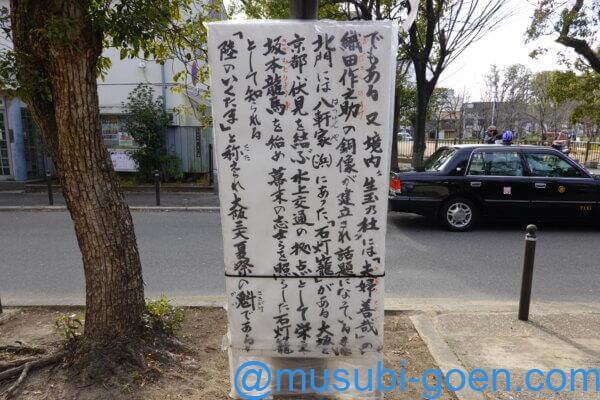 でもある 又 境内、生玉の杜には「夫婦善哉」の
織田作之助の銅像が建立され話題になっている
北門には八軒家(浜)にあった「石灯籠」がある 大坂と
京都伏見を結ぶ水上交通の拠点として栄え
坂本龍馬を始め幕末の志士らを照らした石灯籠
として知られる
「陸のいくたま」と称され大坂三大夏祭の魁である
TAXI
@musubi-goen.com